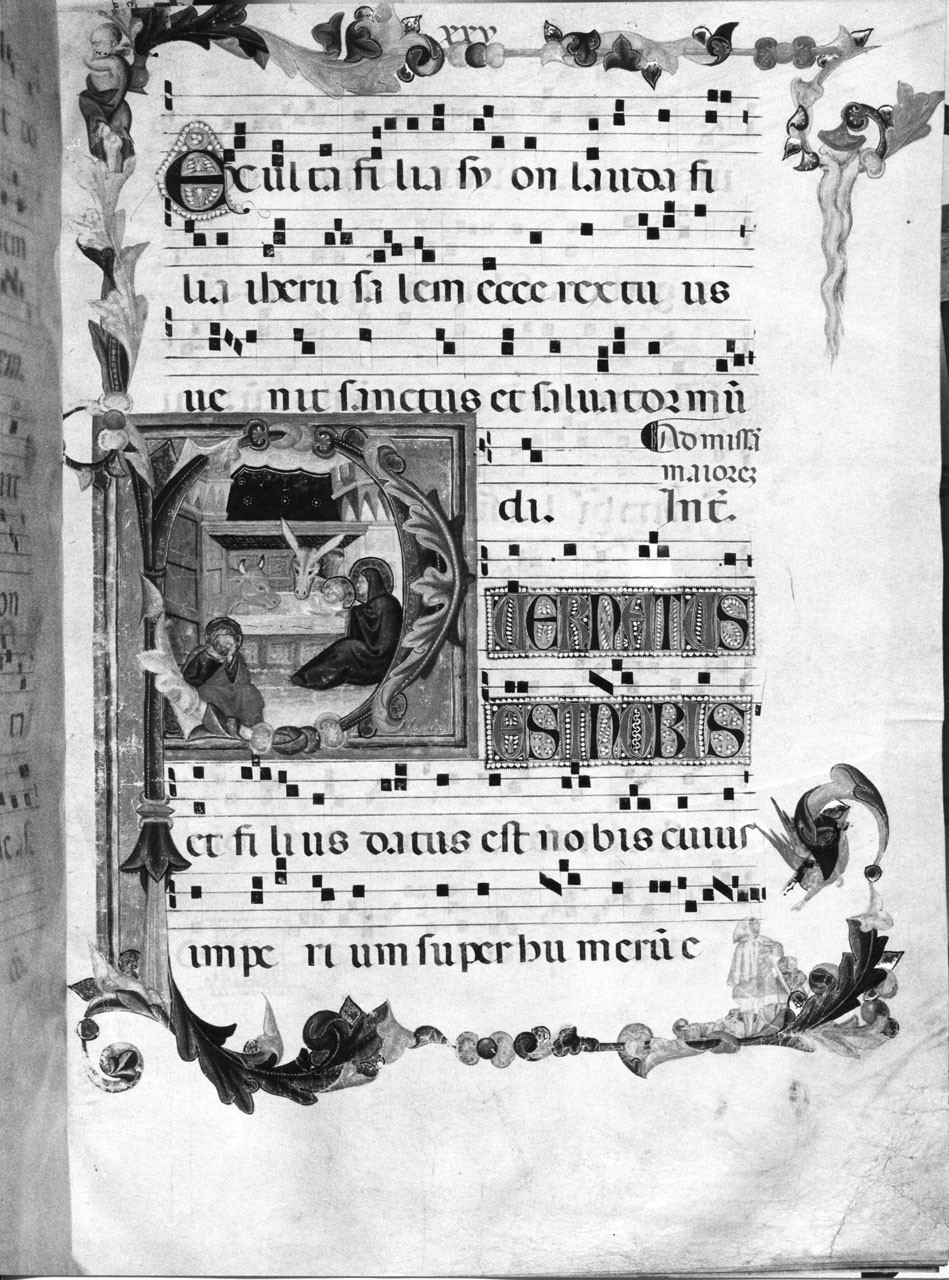 Exulta filia syon lauda fi
lia iherusalem ecce rex tuus
uenit sanctus et saluator mū
Ad missā
maiorez
di. Int̄.
PUER NATUS
EST NOBIS
et filius datus est nobis cuius
imperium super humerū e